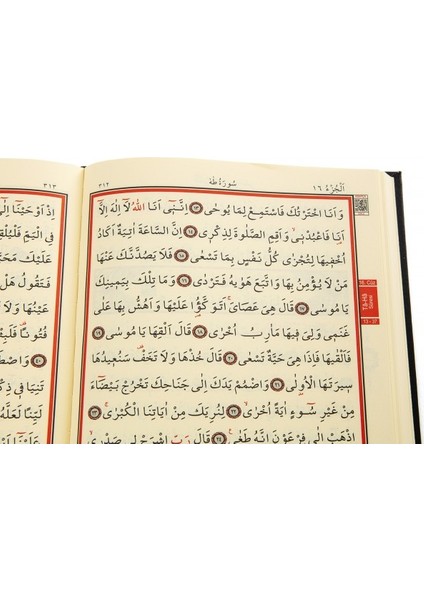 اَلْجُزْءُ ١٦
سُورَةُ طٰهٰ
٣١٢
وَاَنَا اخْتَرْتُكَ فَاسْتَمِعْ لِمَا يُوحٰى ﴿١٣﴾ اِنَّنٖٓي اَنَا اللّٰهُ لَٓا اِلٰهَ اِلَّٓا
اَنَا۬ فَاعْبُدْنٖيۙ وَاَقِمِ الصَّلٰوةَ لِذِكْرٖي ﴿١٤﴾ اِنَّ السَّاعَةَ اٰتِيَةٌ اَكَادُ
اُخْفٖيهَا لِتُجْزٰى كُلُّ نَفْسٍ بِمَا تَسْعٰى ﴿١٥﴾ فَلَا يَصُدَّنَّكَ عَنْهَا
مَنْ لَا يُؤْمِنُ بِهَا وَاتَّبَعَ هَوٰيهُ فَتَرْدٰى ﴿١٦﴾ وَمَا تِلْكَ بِيَمٖينِكَ
يَا مُوسٰى ﴿١٧﴾ قَالَ هِيَ عَصَايَۚ اَتَوَكَّؤُ۬ا عَلَيْهَا وَاَهُشُّ بِهَا عَلٰى
غَنَمٖي وَلِيَ فٖيهَا مَاٰرِبُ اُخْرٰى ﴿١٨﴾ قَالَ اَلْقِهَا يَا مُوسٰى ﴿١٩﴾
فَاَلْقٰيهَا فَاِذَا هِيَ حَيَّةٌ تَسْعٰى ﴿٢٠﴾ قَالَ خُذْهَا وَلَا تَخَفْ۠ سَنُعٖيدُهَا
سٖيرَتَهَا الْاُو۫لٰى ﴿٢١﴾ وَاضْمُمْ يَدَكَ اِلٰى جَنَاحِكَ تَخْرُجْ بَيْضَٓاءَ
مِنْ غَيْرِ سُٓوءٍ اٰيَةً اُخْرٰىۙ ﴿٢٢﴾ لِنُرِيَكَ مِنْ اٰيَاتِنَا الْكُبْرٰىۚ ﴿٢٣﴾
اِذْهَبْ اِلٰى فِرْعَوْنَ اِنَّهُ طَغٰى۟ ﴿٢٤﴾ قَالَ رَبِّ اشْرَحْ لٖي صَدْرٖيۙ
16. Cüz
Tâ-Hâ
Sûresi
13 - 37
٣١٣
اِذْ اَوْحَيْنَٓا
فِي الْيَمِّ
عَلَيْكَ
فَتَقُولُ هَلْ
عَيْنُهَا
فُتُونًا
﴿٤٠﴾
تَنِيَا فٖي
لَيِّنًا لَعَلَّهُ
عَلَيْنَٓا